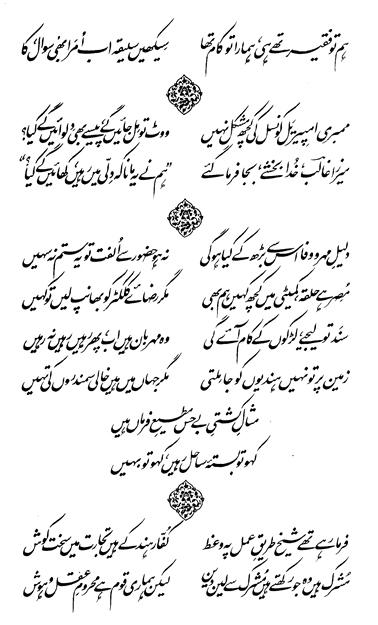 ہم تو فقیر تھے ہی، ہمارا تو کام تھا سیکھیں سلیقہ اب اُمرا بھی سوال کا
ممبری امپیریل کونسل کی کچھ مشکل نہیں ووٹ تو مل جائیں گے، پیسے بھی دلوائیں گے کیا؟
میرزا غالبؔ، خُدا بخشے، بجا فرما گئے ”ہم نے یہ مانا کہ دِلّی میں رہیں، کھائیں گے کیا؟“
دلیلِ مہر و وفا اس سے بڑھ کے کیا ہوگی نہ ہو حضور سے اُلفت تو یہ ستم نہ سہیں
مُصِر ہے حلقہ، کمیٹی میں کچھ کہیں ہم بھی مگر رضائے کلکٹر کو بھانپ لیں تو کہیں
سَنَد تو لیجیے، لڑکوں کے کام آئے گی وہ مہربان ہیں اب، پھر رہیں، رہیں نہ رہیں
زمین پر تو نہیں ہندیوں کو جا ملتی مگر جہاں میں ہیں خالی سمندروں کی تہیں
مثالِ کشتیِ بے حس مطیعِ فرماں ہیں
کہو تو بستۂ ساحل رہیں، کہو تو بہیں
فرما رہے تھے شیخ طریقِ عمل پہ وعظ کُفّار ہند کے ہیں تجارت میں سخت کوش
مُشرک ہیں وہ جو رکھتے ہیں مُشرک سے لین دین لیکن ہماری قوم ہے محرومِ عقل و ہوش